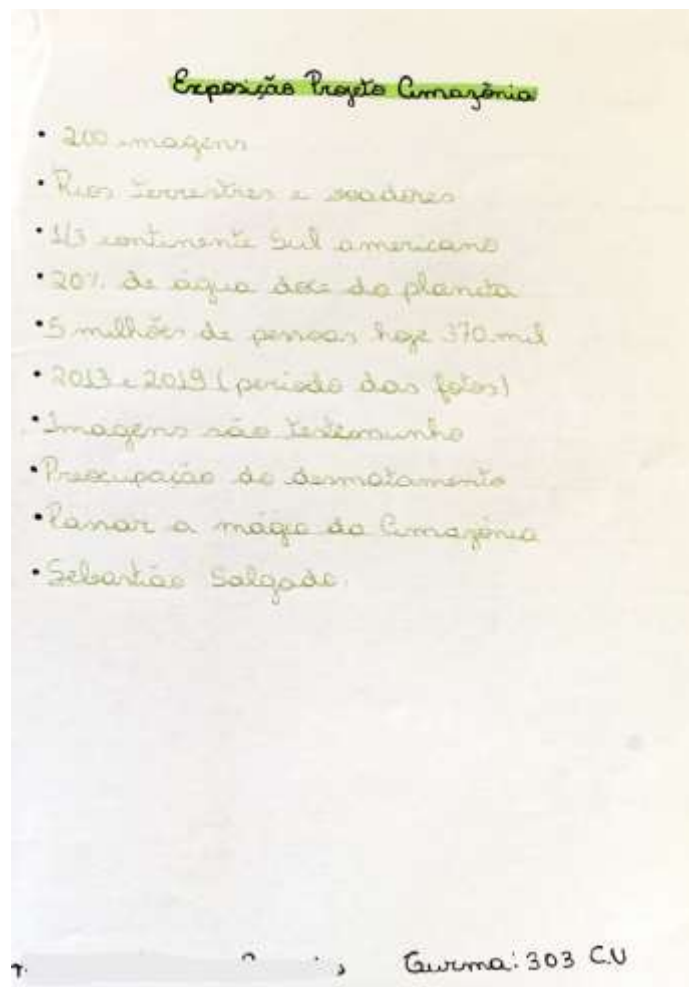 Exposição Projeto Amazônia
• 200 imagens
• Rios terrestres e voadores
• 1/3 continente Sul americano
• 20% de água doce do planeta
• 5 milhões de pessoas hoje 370 mil
• 2013 e 2019 (periodo das fotos)
• Imagens são testemunho
• Preocupação do desmatamento
• Passar a mágia da Amazônia
• Sebastião Salgado.
Turma: 303 C.V